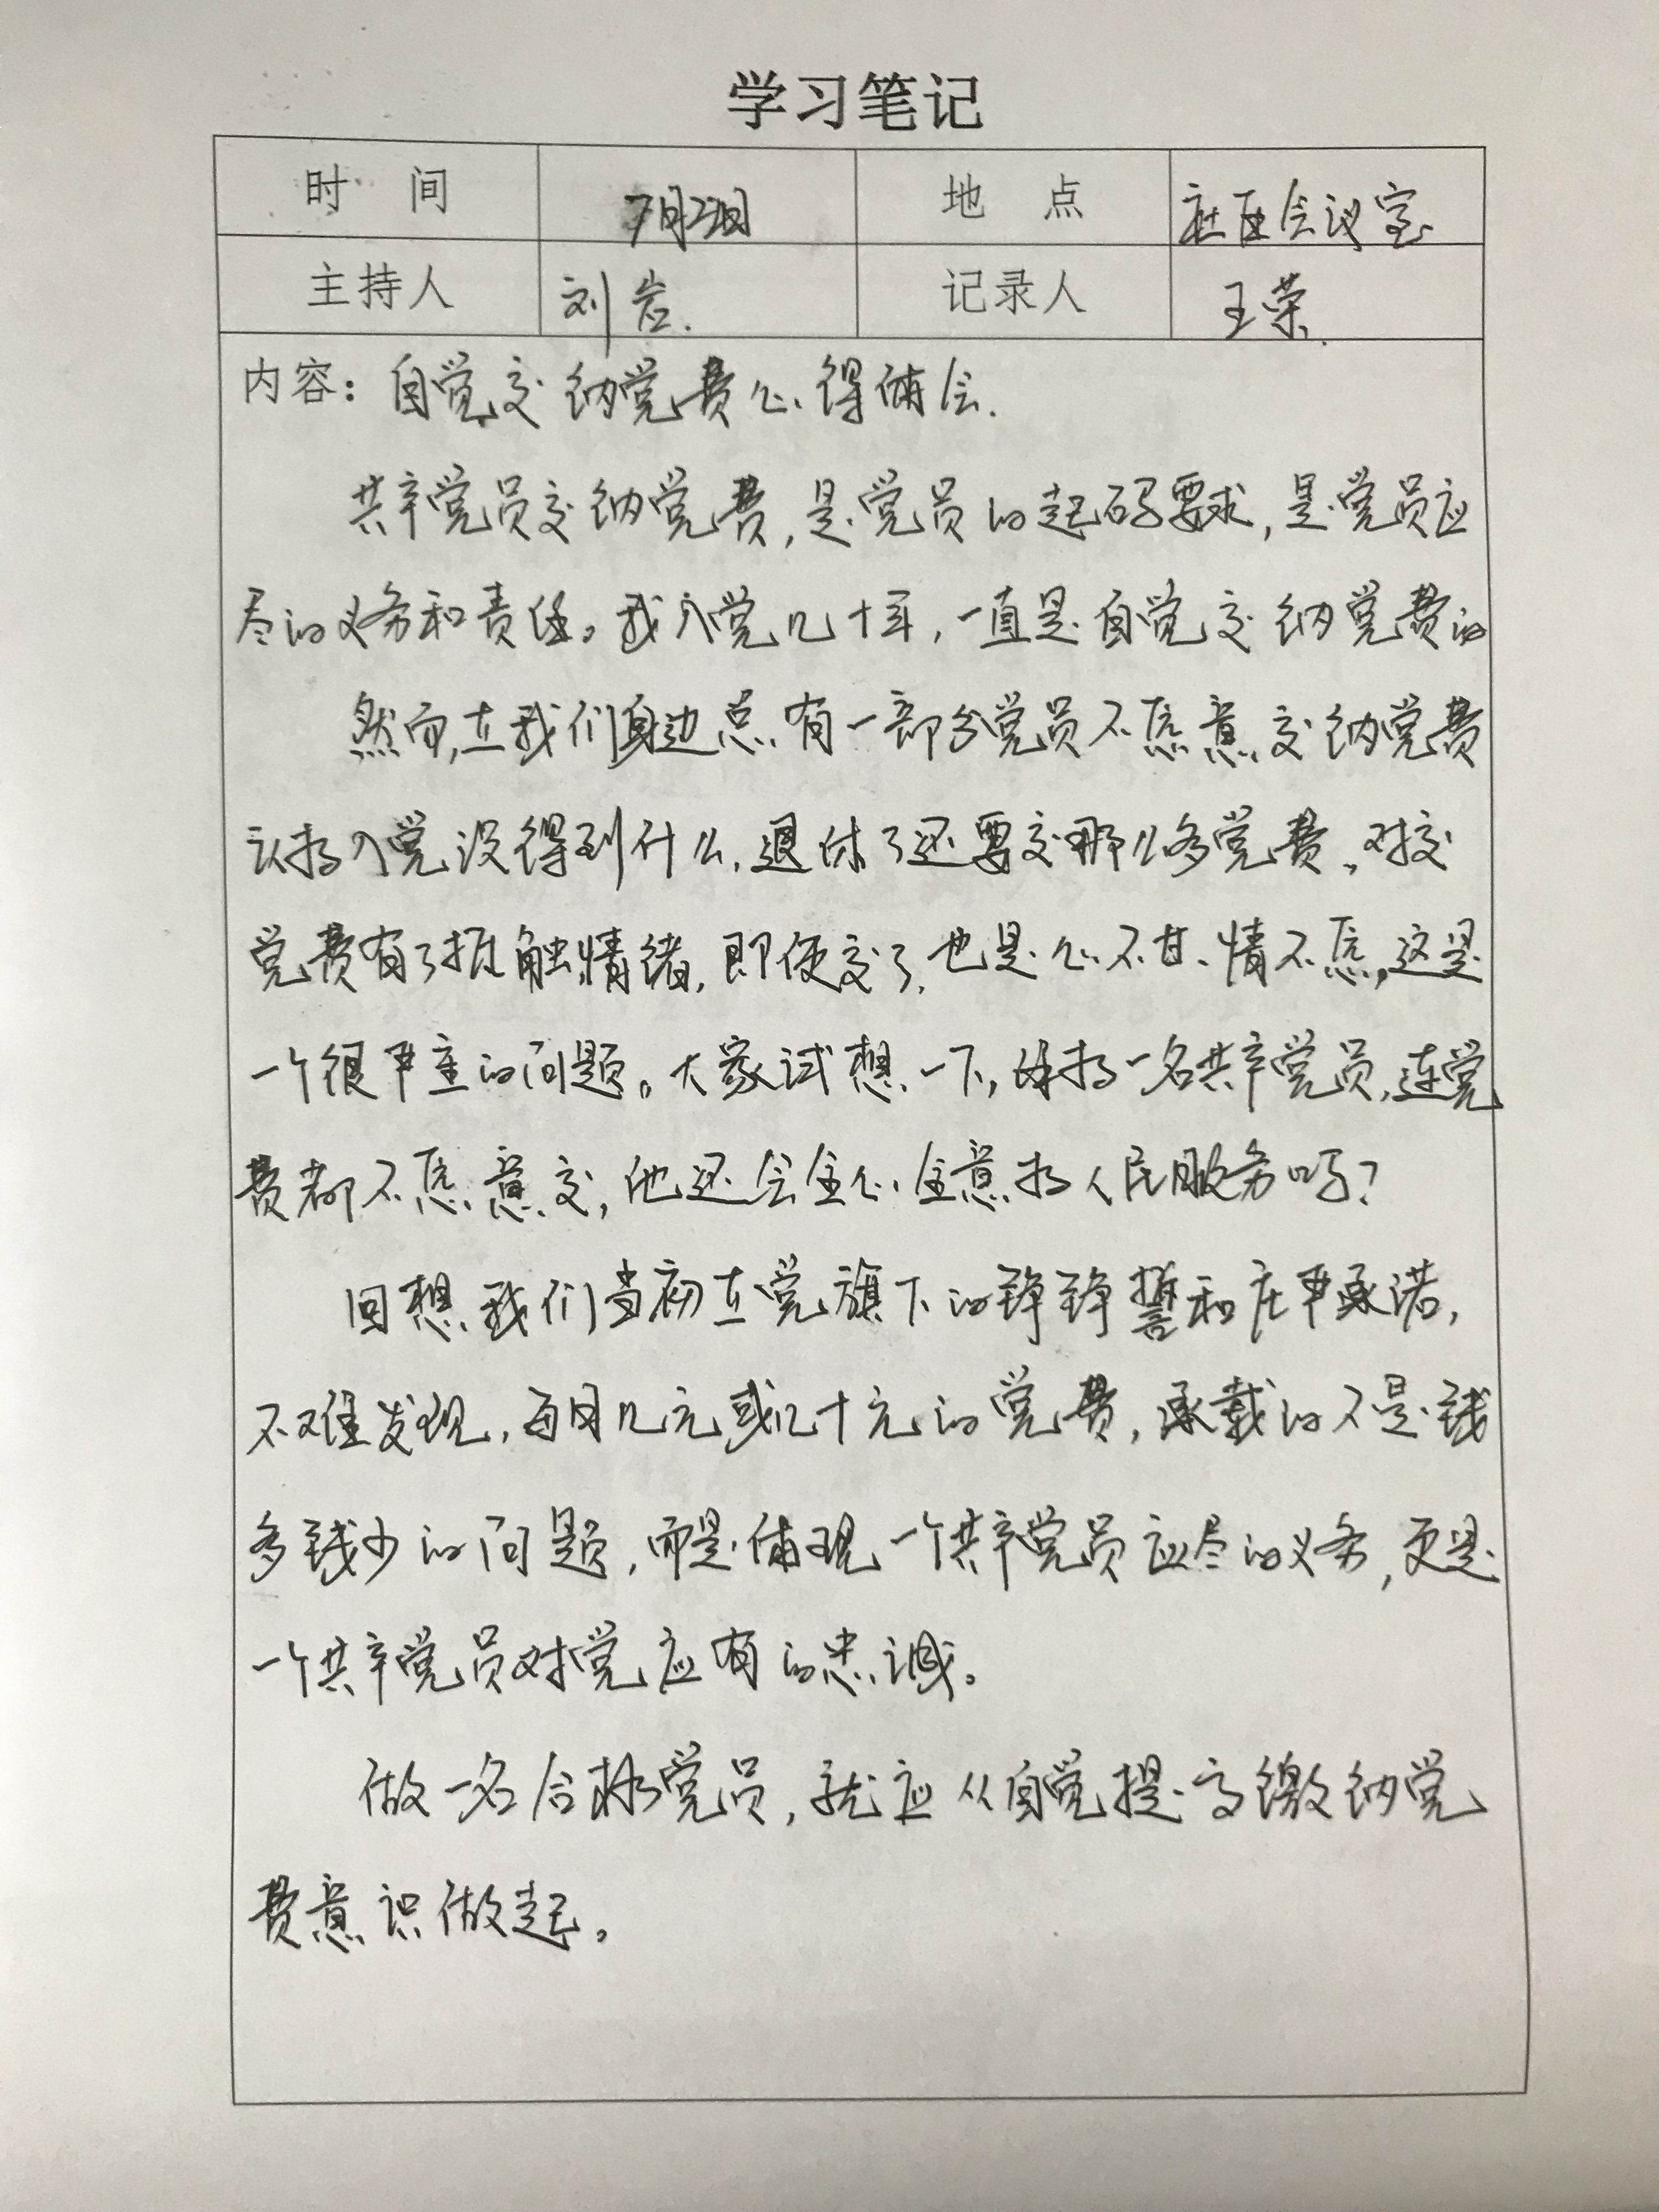 学习笔记
时 间 7月22日 地 点 社区会议室
主持人 刘岩. 记录人 王荣.
内容：自觉交纳党费心得体会.
共产党员交纳党费,是党员的起码要求,是党员应
尽的义务和责任。我入党几十年,一直是自觉交纳党费的
然而,在我们身边总有一部分党员不愿意交纳党费
认为入党没得到什么,退休了还要交那么多党费。对交
党费有了抵触情绪,即便交了,也是心不甘、情不愿,这是
一个很严重的问题。大家试想一下,作为一名共产党员,连党
费都不愿意交,他还会全心全意为人民服务吗?
回想我们当初在党旗下的铮铮誓和庄严承诺,
不难发现,每月几元或几十元的党费,承载的不是钱
多钱少的问题,而是体现一个共产党员应尽的义务,更是
一个共产党员对党应有的忠诚。
做一名合格党员,就应从自觉提高缴纳党
费意识做起。